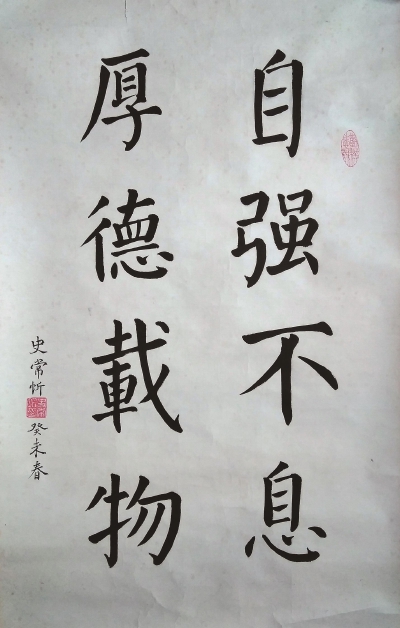 自强不息
厚德載物
史常忻
癸未春